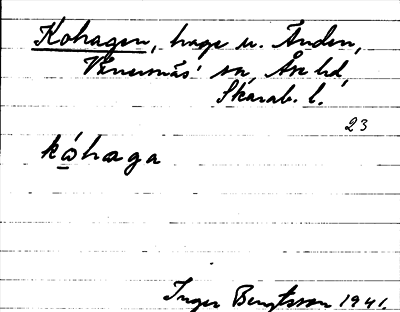 Kohagen, hage u. Änden,
Vänersnäs sn, Åse hd,
Skarab. l.
23
kóhaga
Inger Bengtsson 1941.